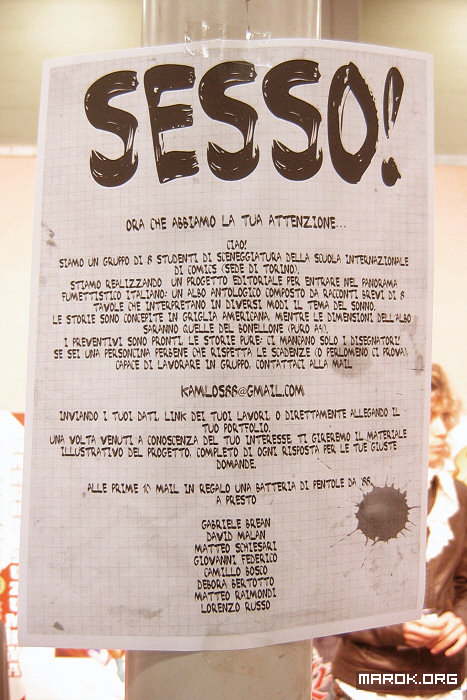 SESSO!
ORA CHE ABBIAMO LA TUA ATTENZIONE...
CIAO!
SIAMO UN GRUPPO DI 8 STUDENTI DI SCENEGGIATURA DELLA SCUOLA INTERNAZIONALE
DI COMICS (SEDE DI TORINO).
STIAMO REALIZZANDO UN PROGETTO EDITORIALE PER ENTRARE NEL PANORAMA
FUMETTISTICO ITALIANO: UN ALBO ANTOLOGICO COMPOSTO DA RACCONTI BREVI DI 8
TAVOLE CHE INTERPRETANO IN DIVERSI MODI IL TEMA DEL SONNO.
LE STORIE SONO CONCEPITE IN GRIGLIA AMERICANA, MENTRE LE DIMENSIONI DELL'ALBO
SARANNO QUELLE DEL BONELLONE (PURO A4).
I PREVENTIVI SONO PRONTI, LE STORIE PURE: CI MANCANO SOLO I DISEGNATORI!
SE SEI UNA PERSONCINA PERBENE CHE RISPETTA LE SCADENZE (O PERLOMENO CI PROVA),
CAPACE DI LAVORARE IN GRUPPO, CONTATTACI ALLA MAIL
KAMLOS88@GMAIL.COM
INVIANDO I TUOI DATI, LINK DEI TUOI LAVORI, O DIRETTAMENTE ALLEGANDO IL
TUO PORTFOLIO.
UNA VOLTA VENUTI A CONOSCENZA DEL TUO INTERESSE TI GIREREMO IL MATERIALE
ILLUSTRATIVO DEL PROGETTO, COMPLETO DI OGNI RISPOSTA PER LE TUE GIUSTE
DOMANDE.
ALLE PRIME 10 MAIL IN REGALO UNA BATTERIA DI PENTOLE DA '88
A PRESTO
GABRIELE BREAN
DAVID MALAN
MATTEO SCHIESARI
GIOVANNI FEDERICO
CAMILLO BOSCO
DEBORA BERTOTTO
MATTEO RAIMONDI
LORENZO RUSSO
MAROK.ORG